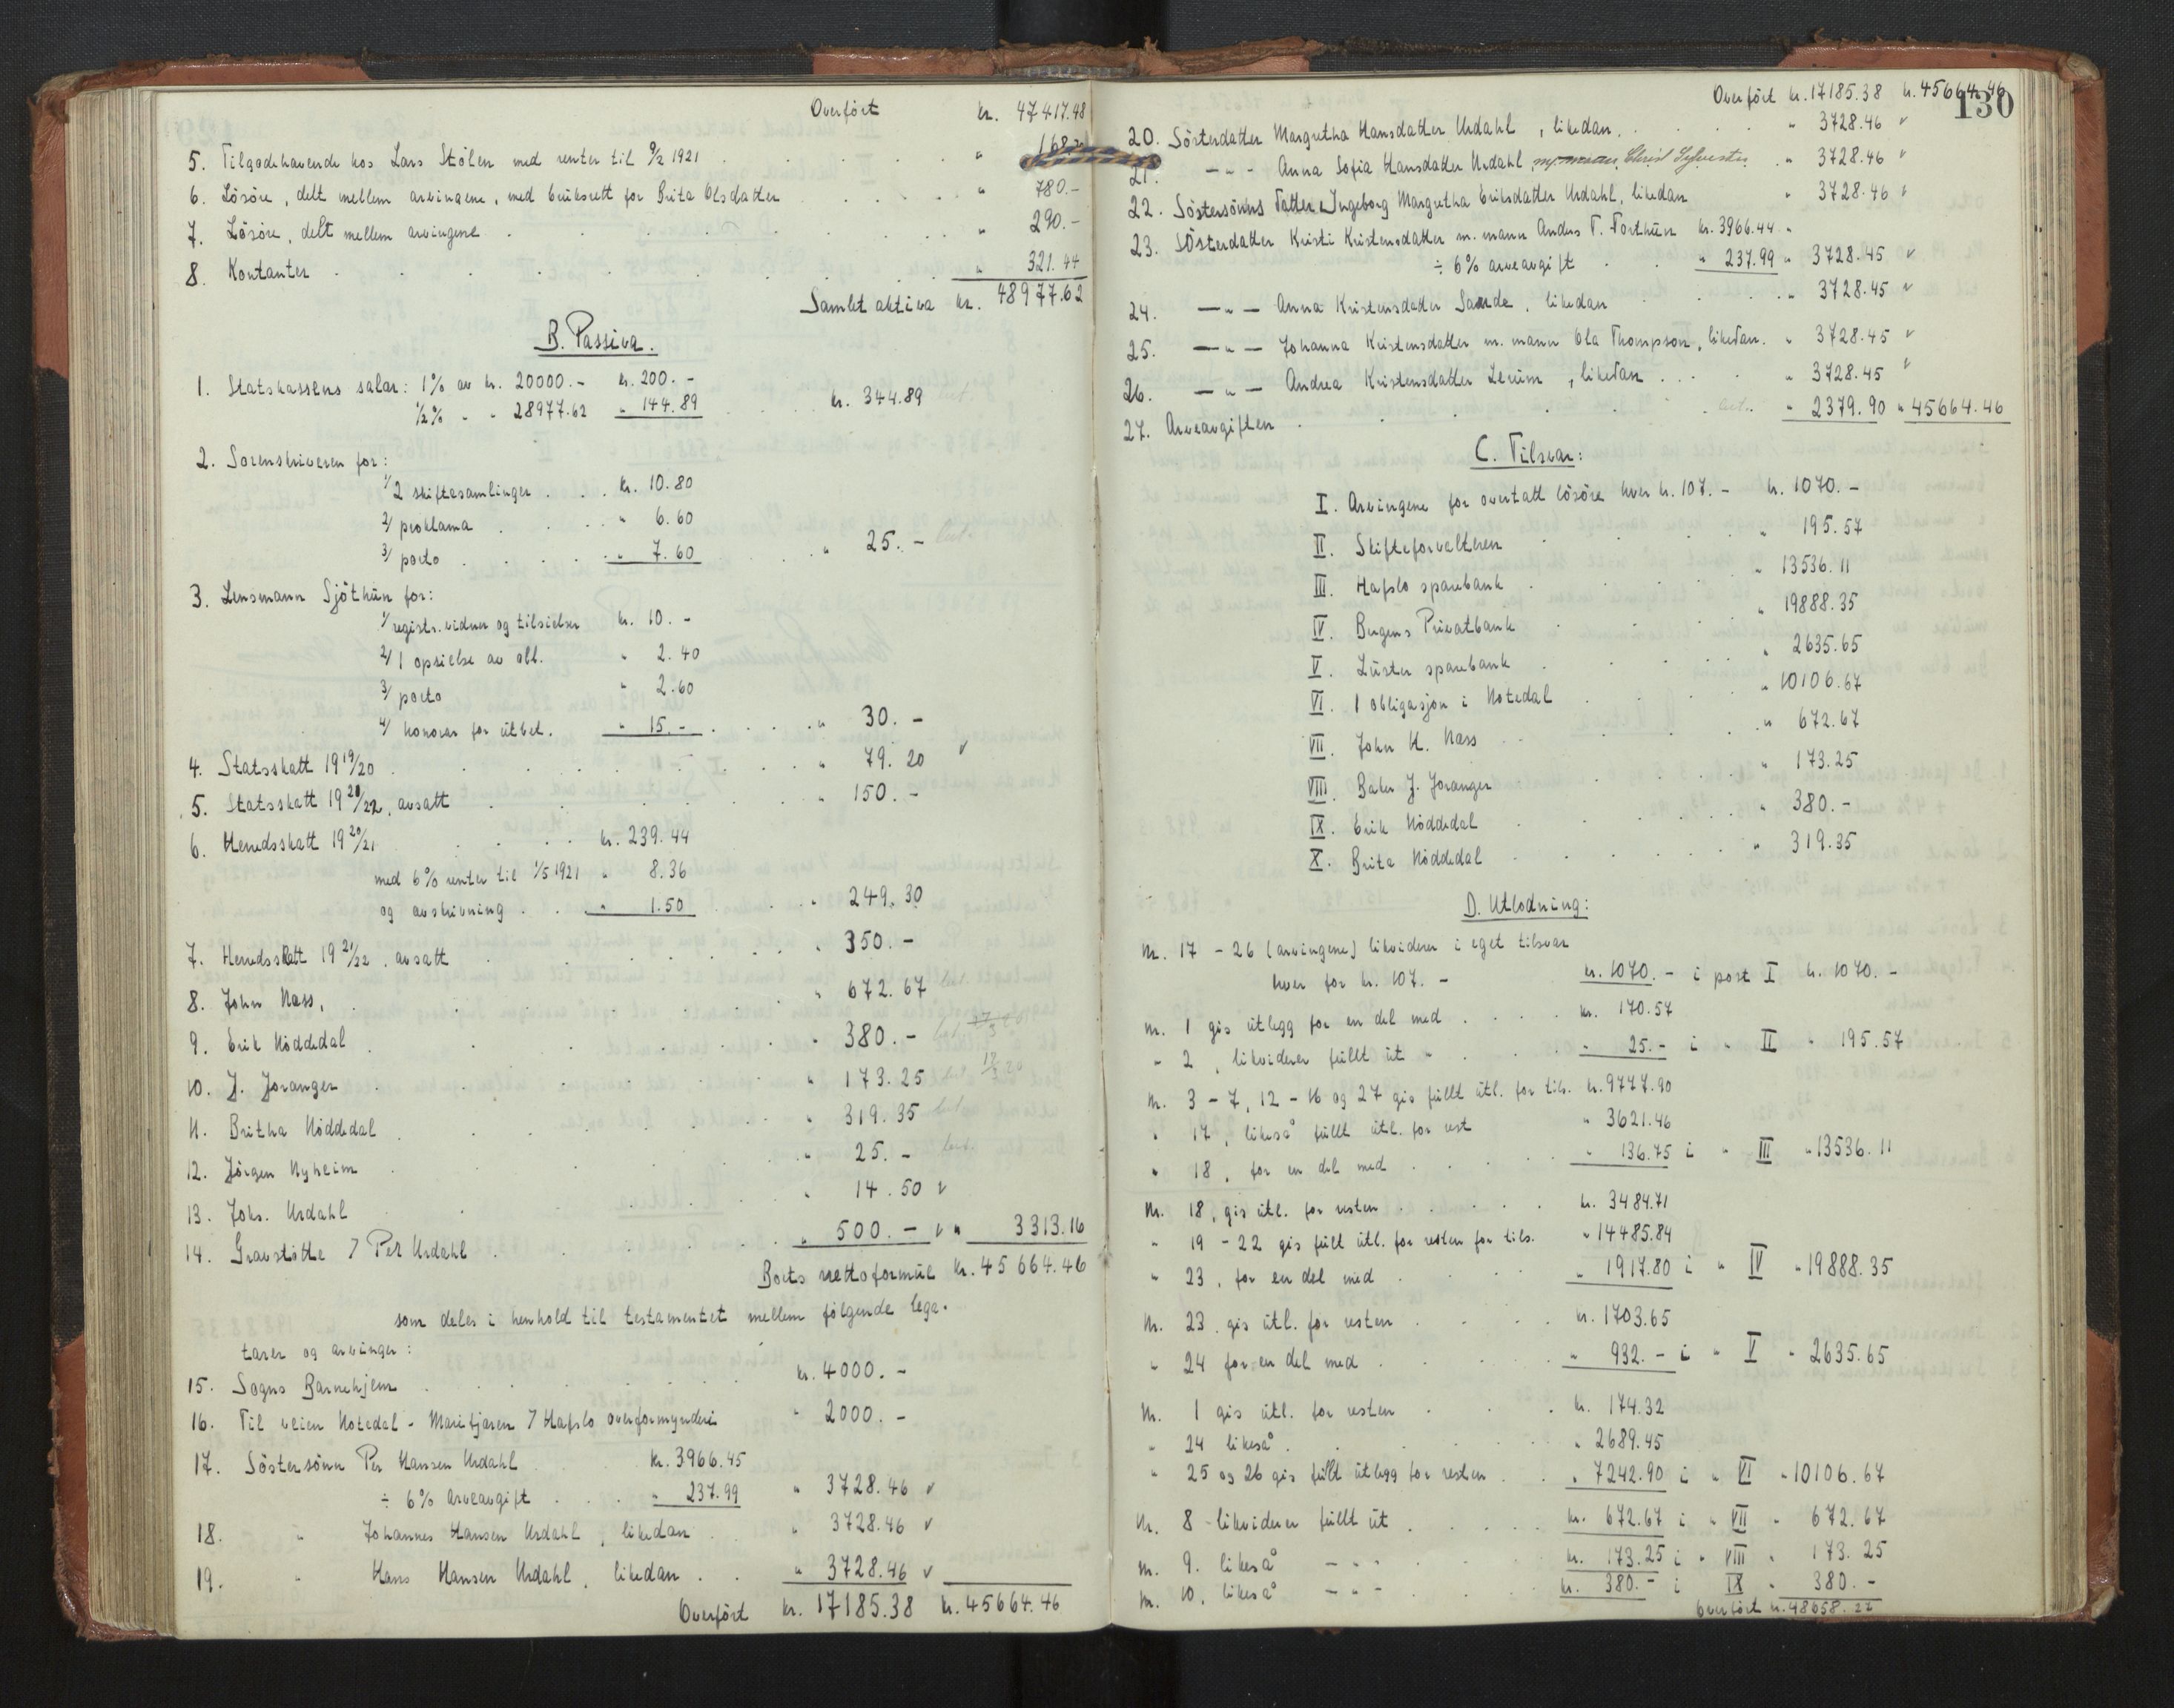 Overført kr. 47417.48
5. Tilgodehavende hos Lars Stölen med renter til 9/2 1921 . . . . "
6. Lösöre, delt mellem arvingene, med bruksrett for Brita Olsdatter . . . . " 780.-
7. Lösöre, delt mellem arvingene . . . . " 290.-
8. Kontanter . . . . " 321.44
Samlet aktiva kr. 48977.62
B. Passiva.
1. Statskassens salær: 1% av kr. 20000.- kr. 200.-
½% " " 28977.62 " 144.89 . . kr. 344.89
2. Sorenskriveren for:
1/ 2 skiftesamlinger . . . kr. 10.80
2/ proklama . . . " 6.60
3/ porto . . . " 7.60 . . " 25.-
3. Lensmann Sjöthun for:
1/ registr. vidner og tilsielser kr. 10.-
2/ 1 opsielse av obl. " 2.40
3/ porto " 2.60
4/ honorar for utbet. " 15.- . . . " 30.-
4. Statsskatt 19 19/20 . . . . " 79.20 v
5. Statsskatt 19 20/22, avsatt . . . . " 150.-
6. Herredsskatt 19 20/21 . . . kr. 239.44
med 6% renter til 1/5 1921 " 8.36
og avskrivning . . . " 1.50 . . " 249.30
7. Herredsskatt 19 21/22, avsatt . . . . " 350.-
8. John Nass, . . . . " 672.67
9. Erik Höddedal . . . . " 380.-
10. J. Joranger . . . . " 173.25
11. Britha Höddedal . . . . " 319.35
12. Jörgen Nyheim . . . . " 25.-
13. Johs. Urdahl . . . . " 14.50 v
14. Gravstötte / Per Urdahl . . . . " 500.- v " 3313.16
Boets nettoformue kr. 45664.46
som deles i henhold til testamentet mellem følgende lega-
tarer og arvinger:
15. Sogns Barnehjem . . . . kr. 4000.-
16. Til veien Notedal - Marifjøren / Hafslo overformynderi " 2000.-
17. Söstersönn Per Hansen Urdahl . . kr. 3966.45
÷ 6% arveavgift . . . " 237.99 " 3728.46 v
18. " Johannes Hansen Urdahl, likedan . " 3728.46 v
19. " Hans Hansen Urdahl, likedan . . " 3728.46 v
Overført kr. 17185.38 kr. 45664.46
130
Overført kr. 17185.38 kr. 45664.46
20. Sösterdatter Margretha Hansdatter Urdahl, likedan . . . . " 3728.46 v
21. — " — Anna Sofia Hansdatter Urdahl, . " 3728.46 v
22. Söstersönns datter Ingeborg Margretha Eriksdatter Urdahl, likedan " 3728.46 v
23. Sösterdatter Kristi Kristensdatter m. mann Anders T. Forthun kr. 3966.44
÷ 6% arveavgift . . " 237.99 " 3728.45 v
24. — " — Anna Kristensdatter Sande, likedan . . . . " 3728.45 v
25. — " — Johanna Kristensdatter m. mann Ola Thompson, likedan. " 3728.45 v
26. — " — Andrea Kristensdatter Lerum, likedan . . . " 3728.45 v
27. Arveavgiften . . . . " 2379.90 " 45664.46
C. Tilsvar:
I. Arvingene for overtatt lösöre hver kr. 107.- kr. 1070.-
II. Skifteforvalteren . . . . " 195.57
III. Hafslo sparebank . . . . " 13536.11
IV. Bergens Privatbank . . . . " 19888.35
V. Luster sparebank . . . . " 2635.65
VI. 1 obligasjon i Notedal . . . . " 10106.67
VII. John H. Nass . . . . " 672.67
VIII. Baker J. Joranger . . . . " 173.25
IX. Erik Höddedal . . . . " 380.-
X. Brita Höddedal . . . . " 319.35
D. Utlodning:
Nr. 17 - 26 (arvingene) likviderer i eget tilsvar
hver for kr. 107.- kr. 1070.- i post I kr. 1070.-
Nr. 1 gis utlegg for en del med . . . . kr. 170.57
" 2, likviderer fullt ut " . . . " 25.- i " II " 195.57
Nr. 3 - 7, 12 - 16 og 27 gis fullt utl. for tils. kr. 9777.90
" 17, likeså fullt utl. for rest " 3621.46
" 18, for en del med . . . . " 136.75 i " III " 13536.11
Nr. 18, gis utl. for resten . . . . kr. 3484.71
" 19 - 22 gis fullt utl. for resten for tils. " 14485.84
" 23, for en del med . . . . " 1917.80 i " IV " 19888.35
Nr. 23. gis utl. for resten . . . . kr. 1703.65
" 24 for en del med . . . . " 932.- i " V " 2635.65
Nr. 1 gis utl. for resten . . . kr. 174.32
" 24 likeså . . . . " 2689.45
" 25 og 26 gis fullt utlegg for resten . . " 7242.90 i " VI " 10106.67
Nr. 8 likviderer fullt ut . . . . kr. 672.67 i " VII " 672.67
Nr. 9. likeså - " - . . . kr. 173.25 i " VIII " 173.25
Nr. 10. likeså - " - . . . kr. 380.- i IX " 380.-
Overført kr. 48658.22